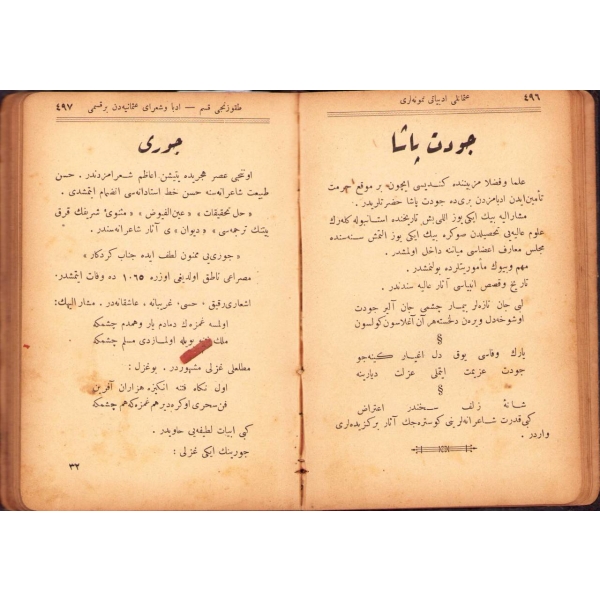 ٤٩٦ عثمانلی ادبیاتی نمونه‌لری
جودت پاشا
علما وفضلا مزیتنده کندیسی ایچونه بر موقع حرمت
تأمین ایدن ادبامزدن بری ده جودت پاشا حضرتلریدر.
مشارالیه بیك ایکی یوز اللی بش تاریخنده استانبوله کله‌رك
علوم عالیه‌یی تحصیلدن صوکره بیك ایکی یوز التمش سنه‌سنده
مجلس معارف اعضاسی میاننه داخل اولمشدر.
مهم وبیوك مأموریتلرده بولنمشدر.
تاریخ وقصص انبیاسی آثار عالیه سندندر.
لبی جان تازه‌لر بیمار چشمی جان آلیر جودت
اوشوخه‌دل ویره‌ن دلخسته‌هر آن آغلاسون کولسون
§
یارك وفاسی یوق دل اغیار کینه‌جو
جودت عزیمت ایتملی عزلت دیارینه
§
شانهٔ زلف سخندر اعتراض
کبی قدرت شاعرانه‌لرینی کوستره‌جك آثار برکزیده‌لری
واردر.
طقوزنجی قسم — ادبا وشعرای عثمانیه‌دن برقسمی ٤٩٧
جوری
اون‌بنجی عصر هجریده یتیشن اعاظم شعرامزدندر. حسن
طبیعت شاعرانه‌سنه حسن خط استادانه‌سی انضمام ایتمشدی.
« حل تحقیقات » « عین‌الفیوض » « مثنوئ شریفك قرق
بیتنك ترجمه‌سی » « دیوان » ی آثار شاعرانه‌سندر.
« جوری‌یی ممنون لطف ایده جناب کردکار »
مصراعی ناطق اولدیغی اوزره ١٠٦٥ ده وفات ایتمشدر.
اشعاری رقیق، حسی، غریبانه. عاشقانه‌در. مشار الیهك:
اولسه غمزه‌ك دمادم یار وهمدم چشمکه
ملك بویله اولمازدی مسلم چشمکه
مطلعلی غزلی مشهوردر. بوغزل:
اول نکاه فتنه انکیزه هزاران آفرین
فن سحری اوکره‌دیرهم غمزه‌که هم چشمکه
کبی ابیات لطیفه‌یی حاویدر.
جورینك ایکی غزلی:
٣٢